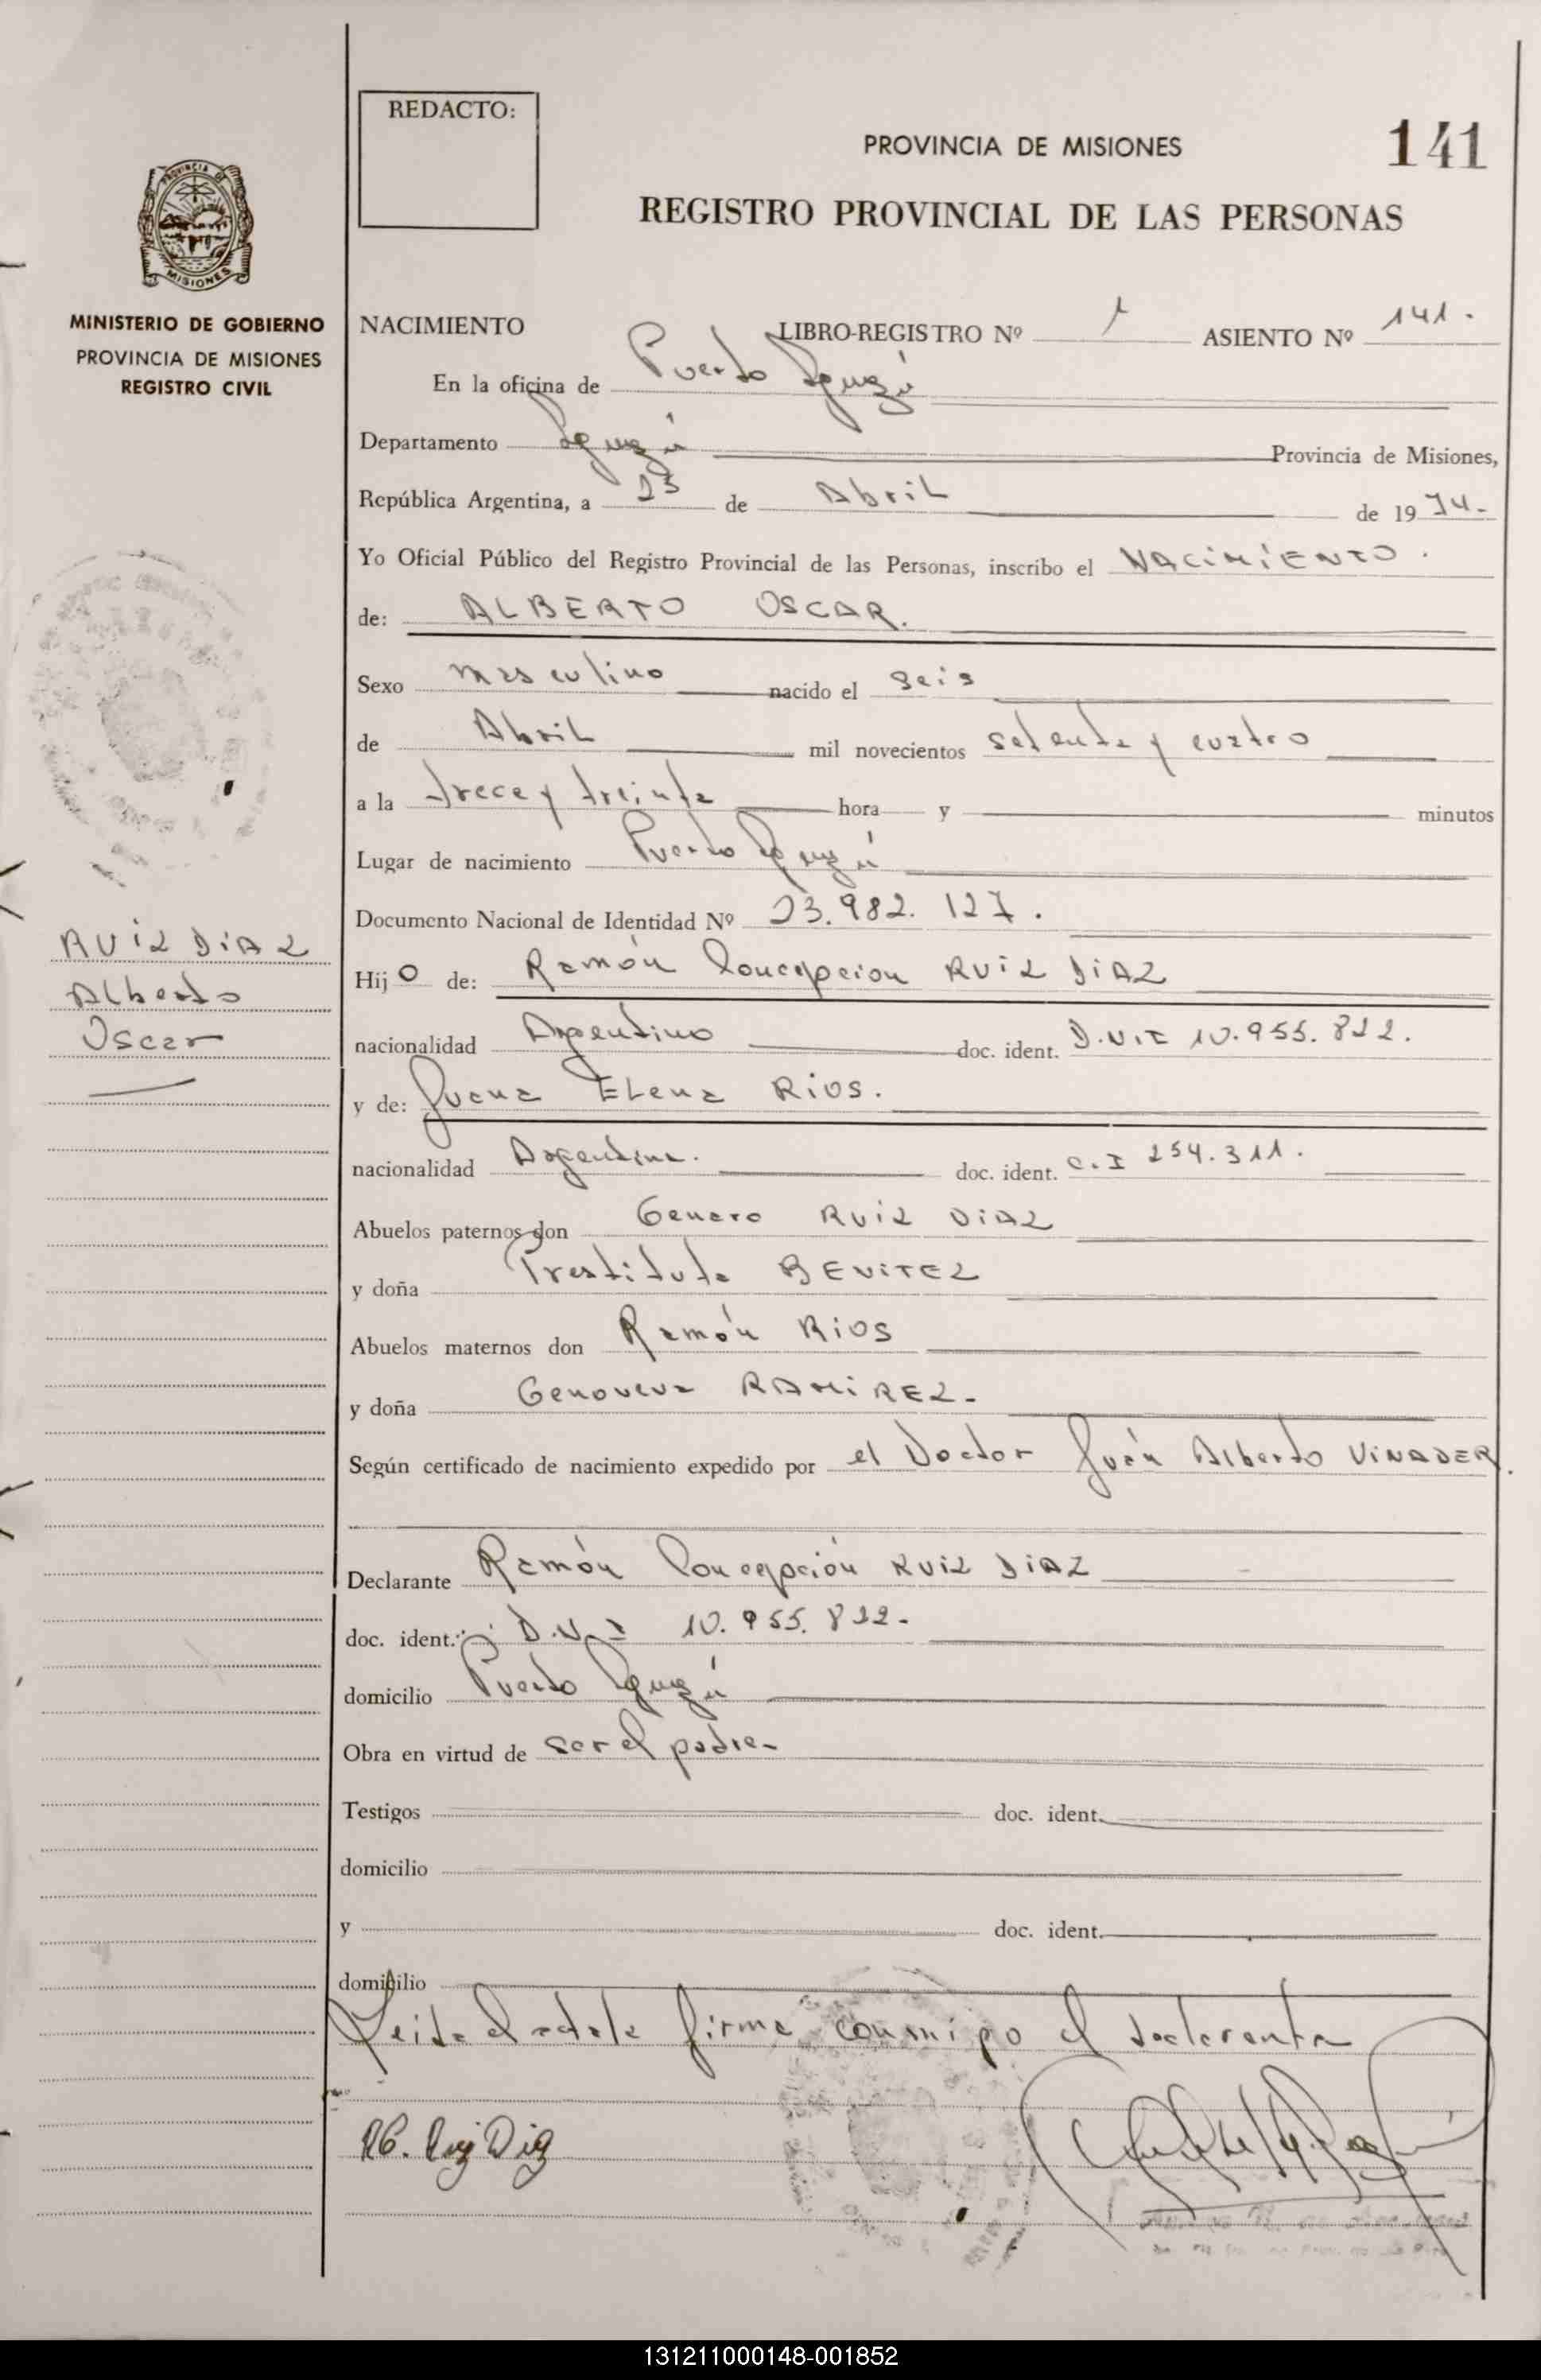 REDACTO:
PROVINCIA DE MISIONES
141
REGISTRO PROVINCIAL DE LAS PERSONAS
PROVINCIA DE
MISIONES
MINISTERIO DE GOBIERNO
PROVINCIA DE MISIONES
REGISTRO CIVIL
NACIMIENTO LIBRO-REGISTRO Nº 1 ASIENTO Nº 141.
En la oficina de Puerto Iguazú
Departamento Iguazú Provincia de Misiones,
República Argentina, a 23 de Abril de 1974.
Yo Oficial Público del Registro Provincial de las Personas, inscribo el NACIMIENTO.
de: ALBERTO OSCAR.
Sexo masculino nacido el seis
de Abril mil novecientos setenta y cuatro
a la trece y treinta hora y minutos
Lugar de nacimiento Puerto Iguazú
Documento Nacional de Identidad Nº 23.982.127.
RUIZ DIAZ
Alberto
Oscar
Hijo de: Ramón Concepcion RUIZ DIAZ
nacionalidad Argentino doc. ident. D.N.I 10.955.822.
y de: Juana Elena RIOS.
nacionalidad Argentina. doc. ident. C.I 254.311.
Abuelos paternos don Genaro RUIZ DIAZ
y doña BENITEZ
Abuelos maternos don Ramón RIOS
y doña Genoveva RAMIREZ-
Según certificado de nacimiento expedido por el Doctor Juán Alberto VINADER.
Declarante Ramón Concepción RUIZ DIAZ
doc. ident.: D.N.I 10.955.822-
domicilio Puerto Iguazú
Obra en virtud de ser el padre-
Testigos doc. ident.
domicilio
y doc. ident.
domicilio
Leida el acta la firma conmigo el declarante
RC. Ruiz Diaz
131211000148-001852